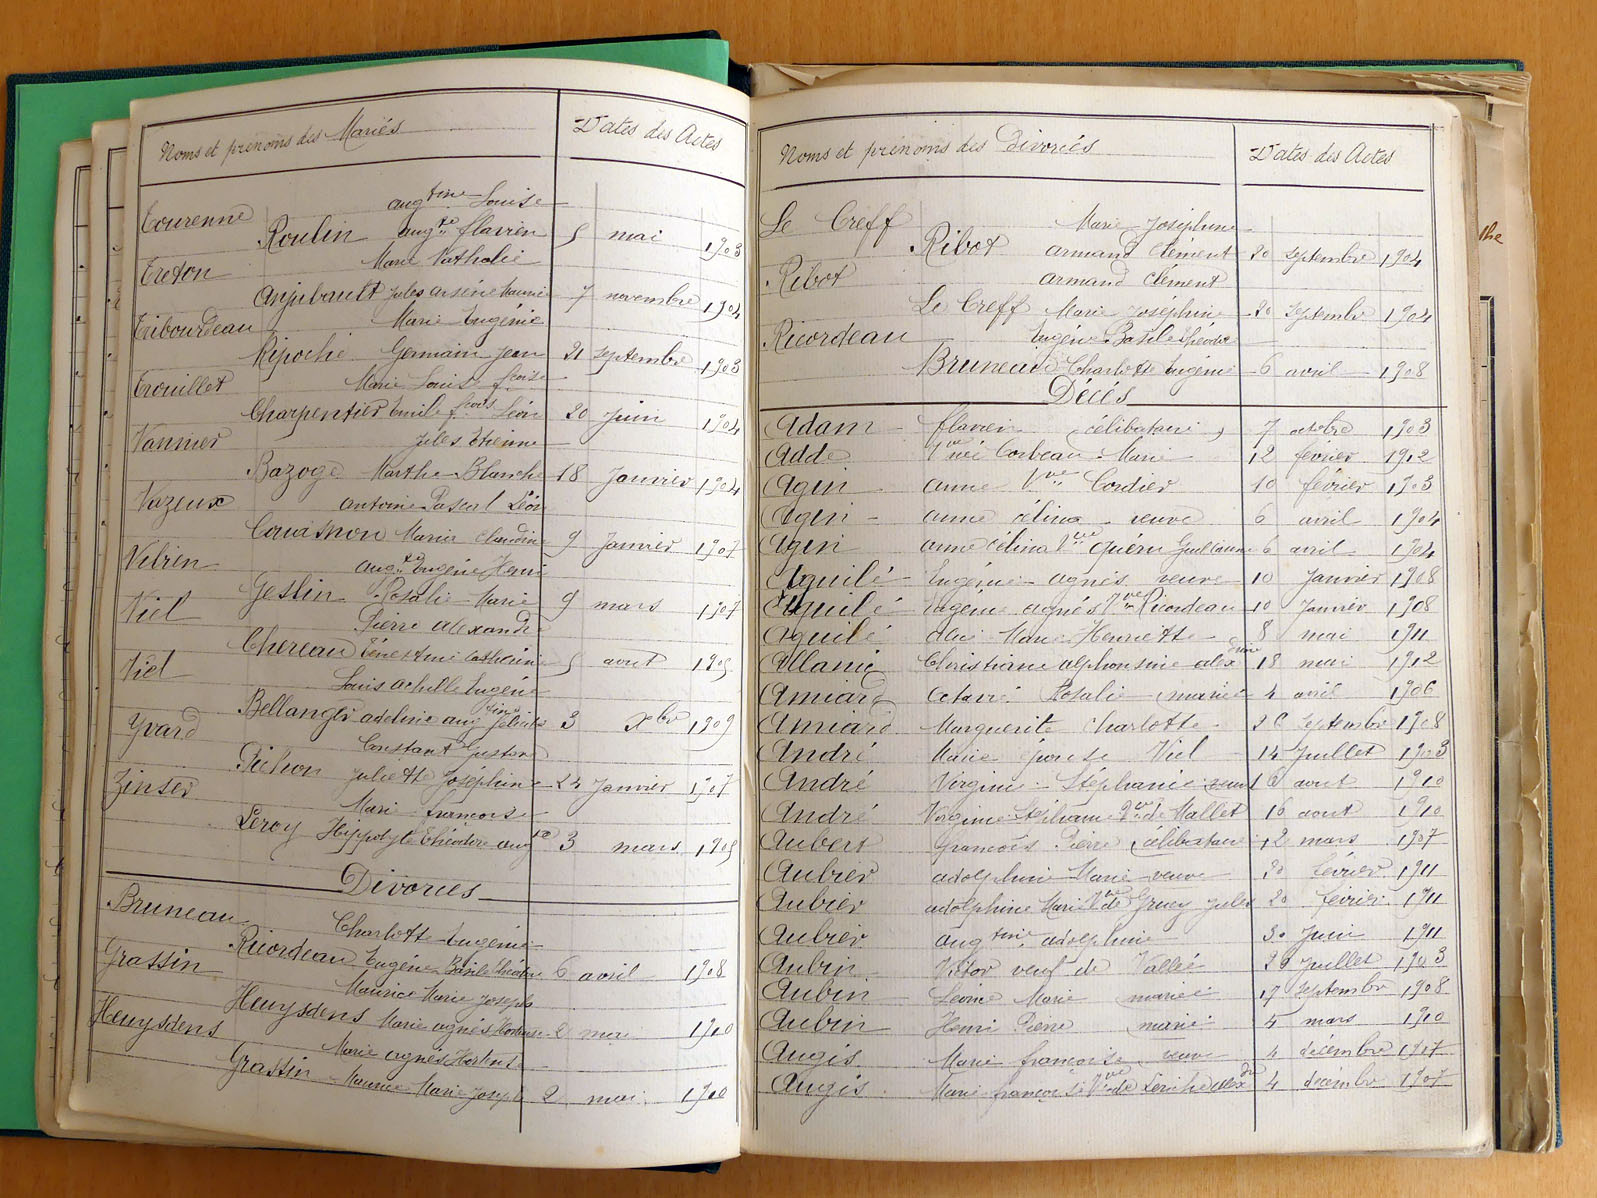 Noms et prénoms des Mariés Dates des Actes
Tourenne aug tine Louise
Roulin aug te flavien 5 mai 1903
Treton Marie Nathalie
Anjubault Jules arsène Maurice 7 novembre 1904
Tribourdeau Marie Eugénie
Ripoche Germain Jean 21 septembre 1903
Trouillet Marie Louise fcoise
Charpentier Emile fcois Léon 20 Juin 1904
Vannier Jules Etienne
Bazoge Marthe Blanche 18 Janvier 1904
Vazeux antoine Pascal Léon
Couasnon Marie Claudine 9 Janvier 1907
Vibien aug te Eugène Henri
Geslin Rosalie Marie 9 mars 1907
Viel Pierre Alexandre
Chereau catherine 5 aout 1905
Viel Louis achille Eugène
Bellanger adeline aug tine 3 Xbre 1909
Yvard Constant Gustave
Pichon Juliette Joséphine 24 Janvier 1907
Zinser Marie françoise
Leroy Hippolyte Théodore aug te 3 mars 1905
Divorces
Bruneau Charlotte Eugénie
Ricordeau Eugène Basile Théodore 6 avril 1908
Grassin Maurice Marie Joseph
Heuysdens Marie agnès Hortense 2 mai 1910
Heuysdens Marie agnès Hortense
Grassin Maurice Marie Joseph 2 mai 1910
Noms et prénoms des Divorcés Dates des Actes
Le Creff Marie Joséphine
Ribot armand Clément 20 septembre 1904
Ribot armand Clément
Le Creff Marie Joséphine 20 septembre 1904
Ricordeau Eugène Basile Théodore
Bruneau Charlotte Eugénie 6 avril 1908
Décès
Adam flavien célibataire 7 octobre 1903
Adde Vve née Corbeau Marie 12 février 1912
Agin anne Vve Cordier 10 février 1903
Agin anne célina veuve 6 avril 1904
Agin anne célina Vve Guérin Guillaume 6 avril 1904
Aguilé Eugénie agnès veuve 10 Janvier 1908
Aguilé Eugénie agnès Vve Ricordeau 10 Janvier 1908
Aguilé Marie Henriette 8 mai 1911
Allanic Christiane alphonsine alex drine 18 mai 1912
Amiard Rosalie mariée 4 avril 1906
Amiard Marguerite Charlotte septembre 1908
André Marie épouse Viel 14 Juillet 1903
André Virginie Stéphanie veuve 16 aout 1910
André Virginie Stéphanie Vve de Mallet 16 aout 1910
Aubert françois Pierre célibataire 12 mars 1907
Aubrer adolphine Marie veuve 20 février 1911
Aubrer adolphine Marie Vve de Gruey Jules 20 février 1911
Aubrer aug tine adolphine 30 Juin 1911
Aubin Victor veuf de Vallée Juillet 1903
Aubin Léonie Marie mariée 17 septembre 1908
Aubin Henri Pierre marié 5 mars 1910
Augis Marie françoise veuve 4 décembre 1907
Augis Marie françoise Vve de alex dre 4 décembre 1907